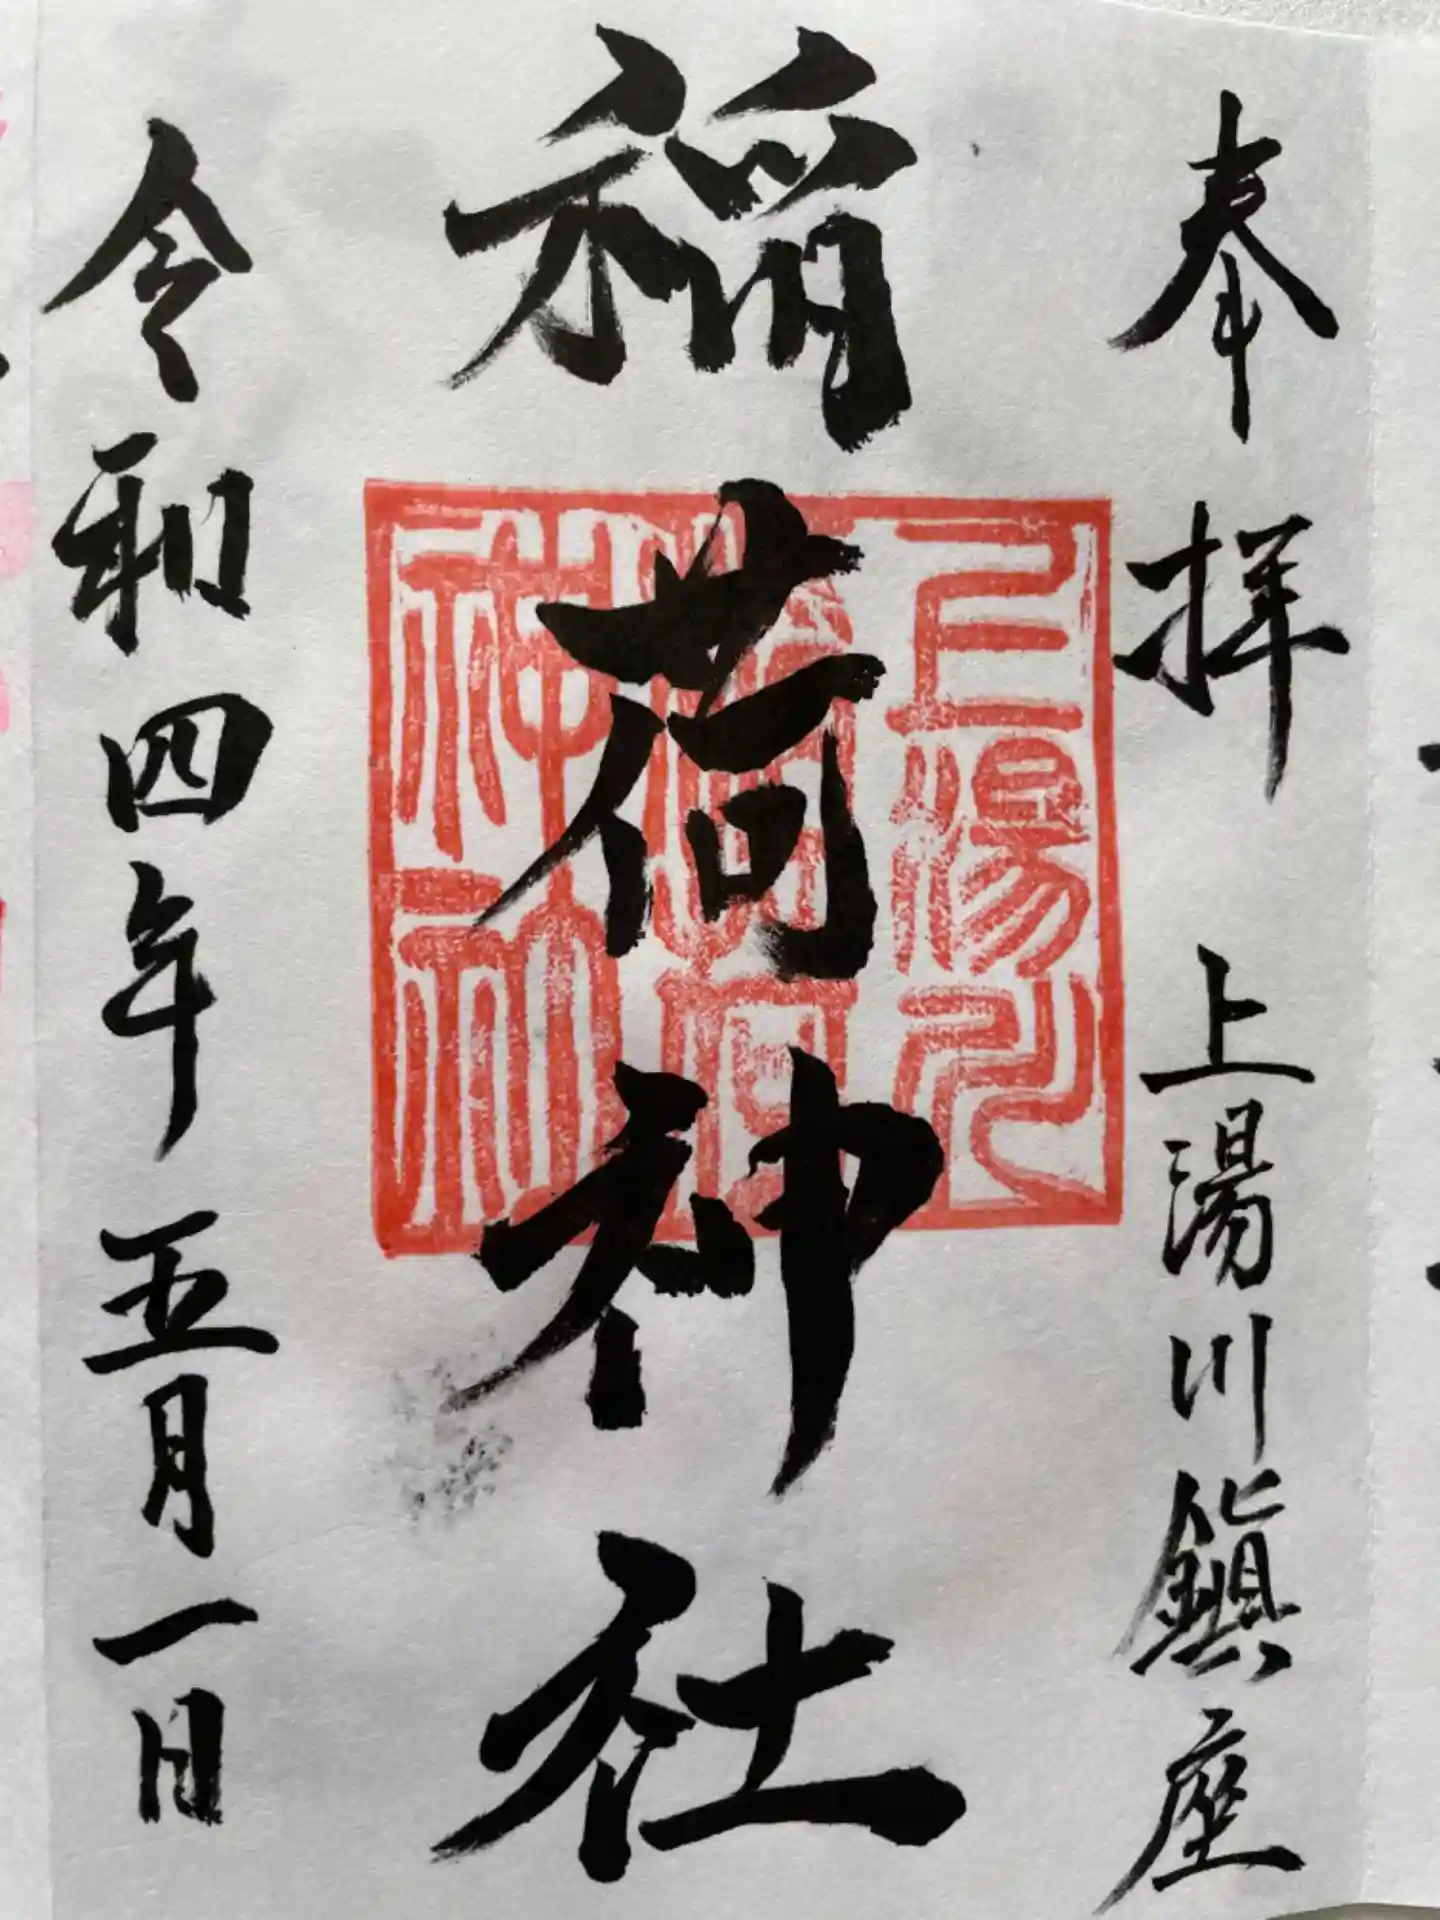 奉拝 上湯川鎮座
稲荷神社
令和四年五月一日
上湯川
稲荷
神社